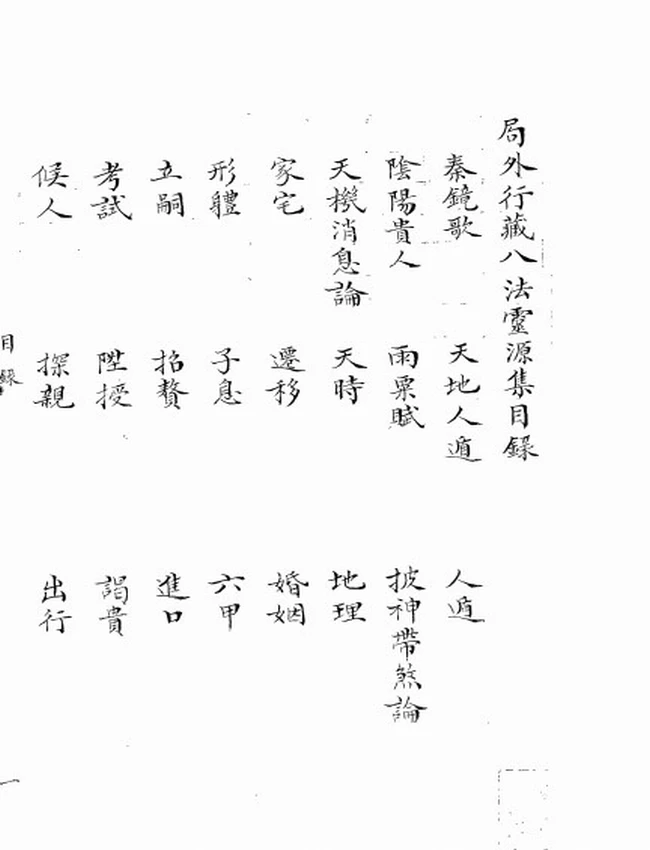 局外行藏八法靈源集目錄
秦鏡歌 天地人遁 人遁
陰陽貴人 雨粟賦 披神帶煞論
天機消息論 天時 地理
家宅 遷移 婚姻
形體 子息 六甲
立嗣 招贅 進口
考試 陞授 謁貴
候人 探親 出行
目錄 一